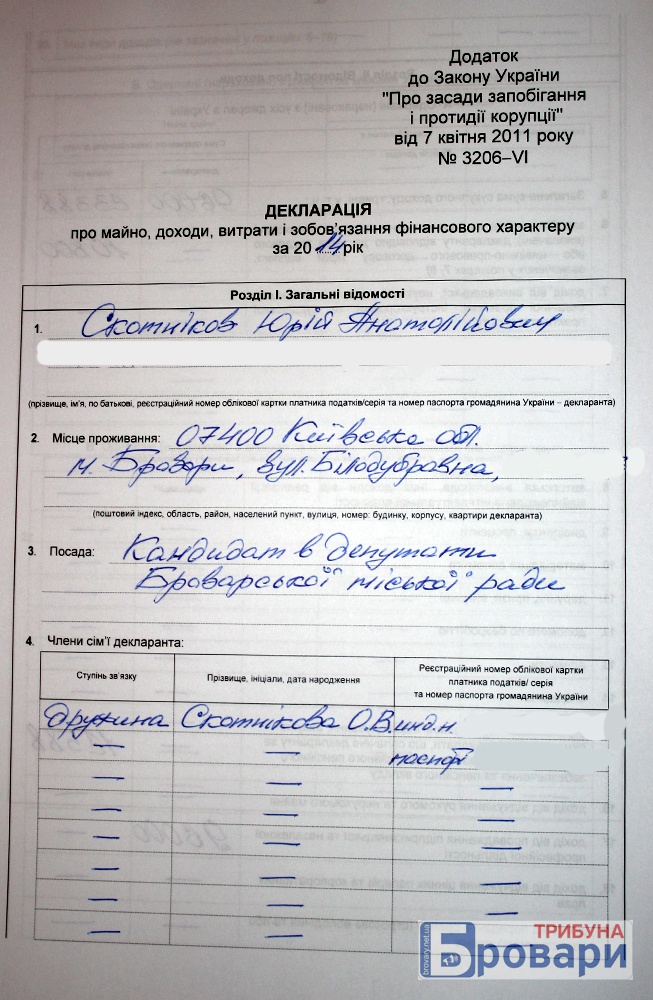 Додаток
до Закону України
"Про засади запобігання
і протидії корупції"
від 7 квітня 2011 року
№ 3206–VI
ДЕКЛАРАЦІЯ
про майно, доходи, витрати і зобов'язання фінансового характеру
за 2014 рік
Розділ І. Загальні відомості
1. Скотніков Юрій Анатолійович
(прізвище, ім'я, по батькові, реєстраційний номер облікової картки платника податків/серія та номер паспорта громадянина України – декларанта)
2. Місце проживання: 07400 Київська обл.
м. Бровари, вул. Білодубравна,
(поштовий індекс, область, район, населений пункт, вулиця, номер: будинку, корпусу, квартири декларанта)
3. Посада: Кандидат в депутати
Броварської міської ради
4. Члени сім'ї декларанта:
Ступінь зв'язку
Прізвище, ініціали, дата народження
Реєстраційний номер облікової картки
платника податків/ серія
та номер паспорта громадянина України
дружина Скотнікова О.В. инд.н.
— — паспорт
— — —
— — —
— — —
— — —
— — —
— — —
ТРИБУНА
Бровари
brovary.net.ua